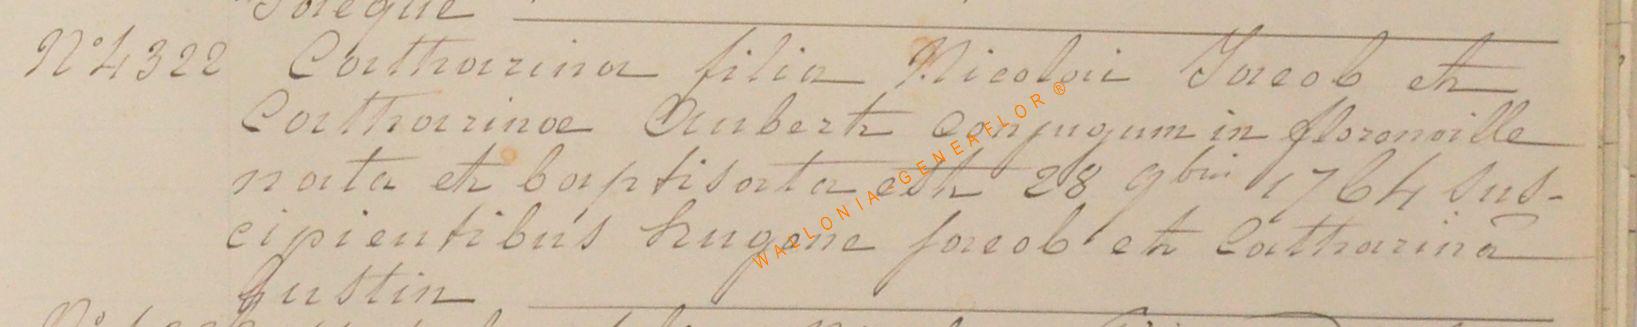 Jacque
N° 4322 Catharina filia Nicolai Jacob et
Catharinae Aubert conjugum in florenville
nata et baptisata est 28 9bris 1764 sus-
cipientibus hugone jacob et Catharinâ
Justin
WALLONIA-GENEAFLOR ®